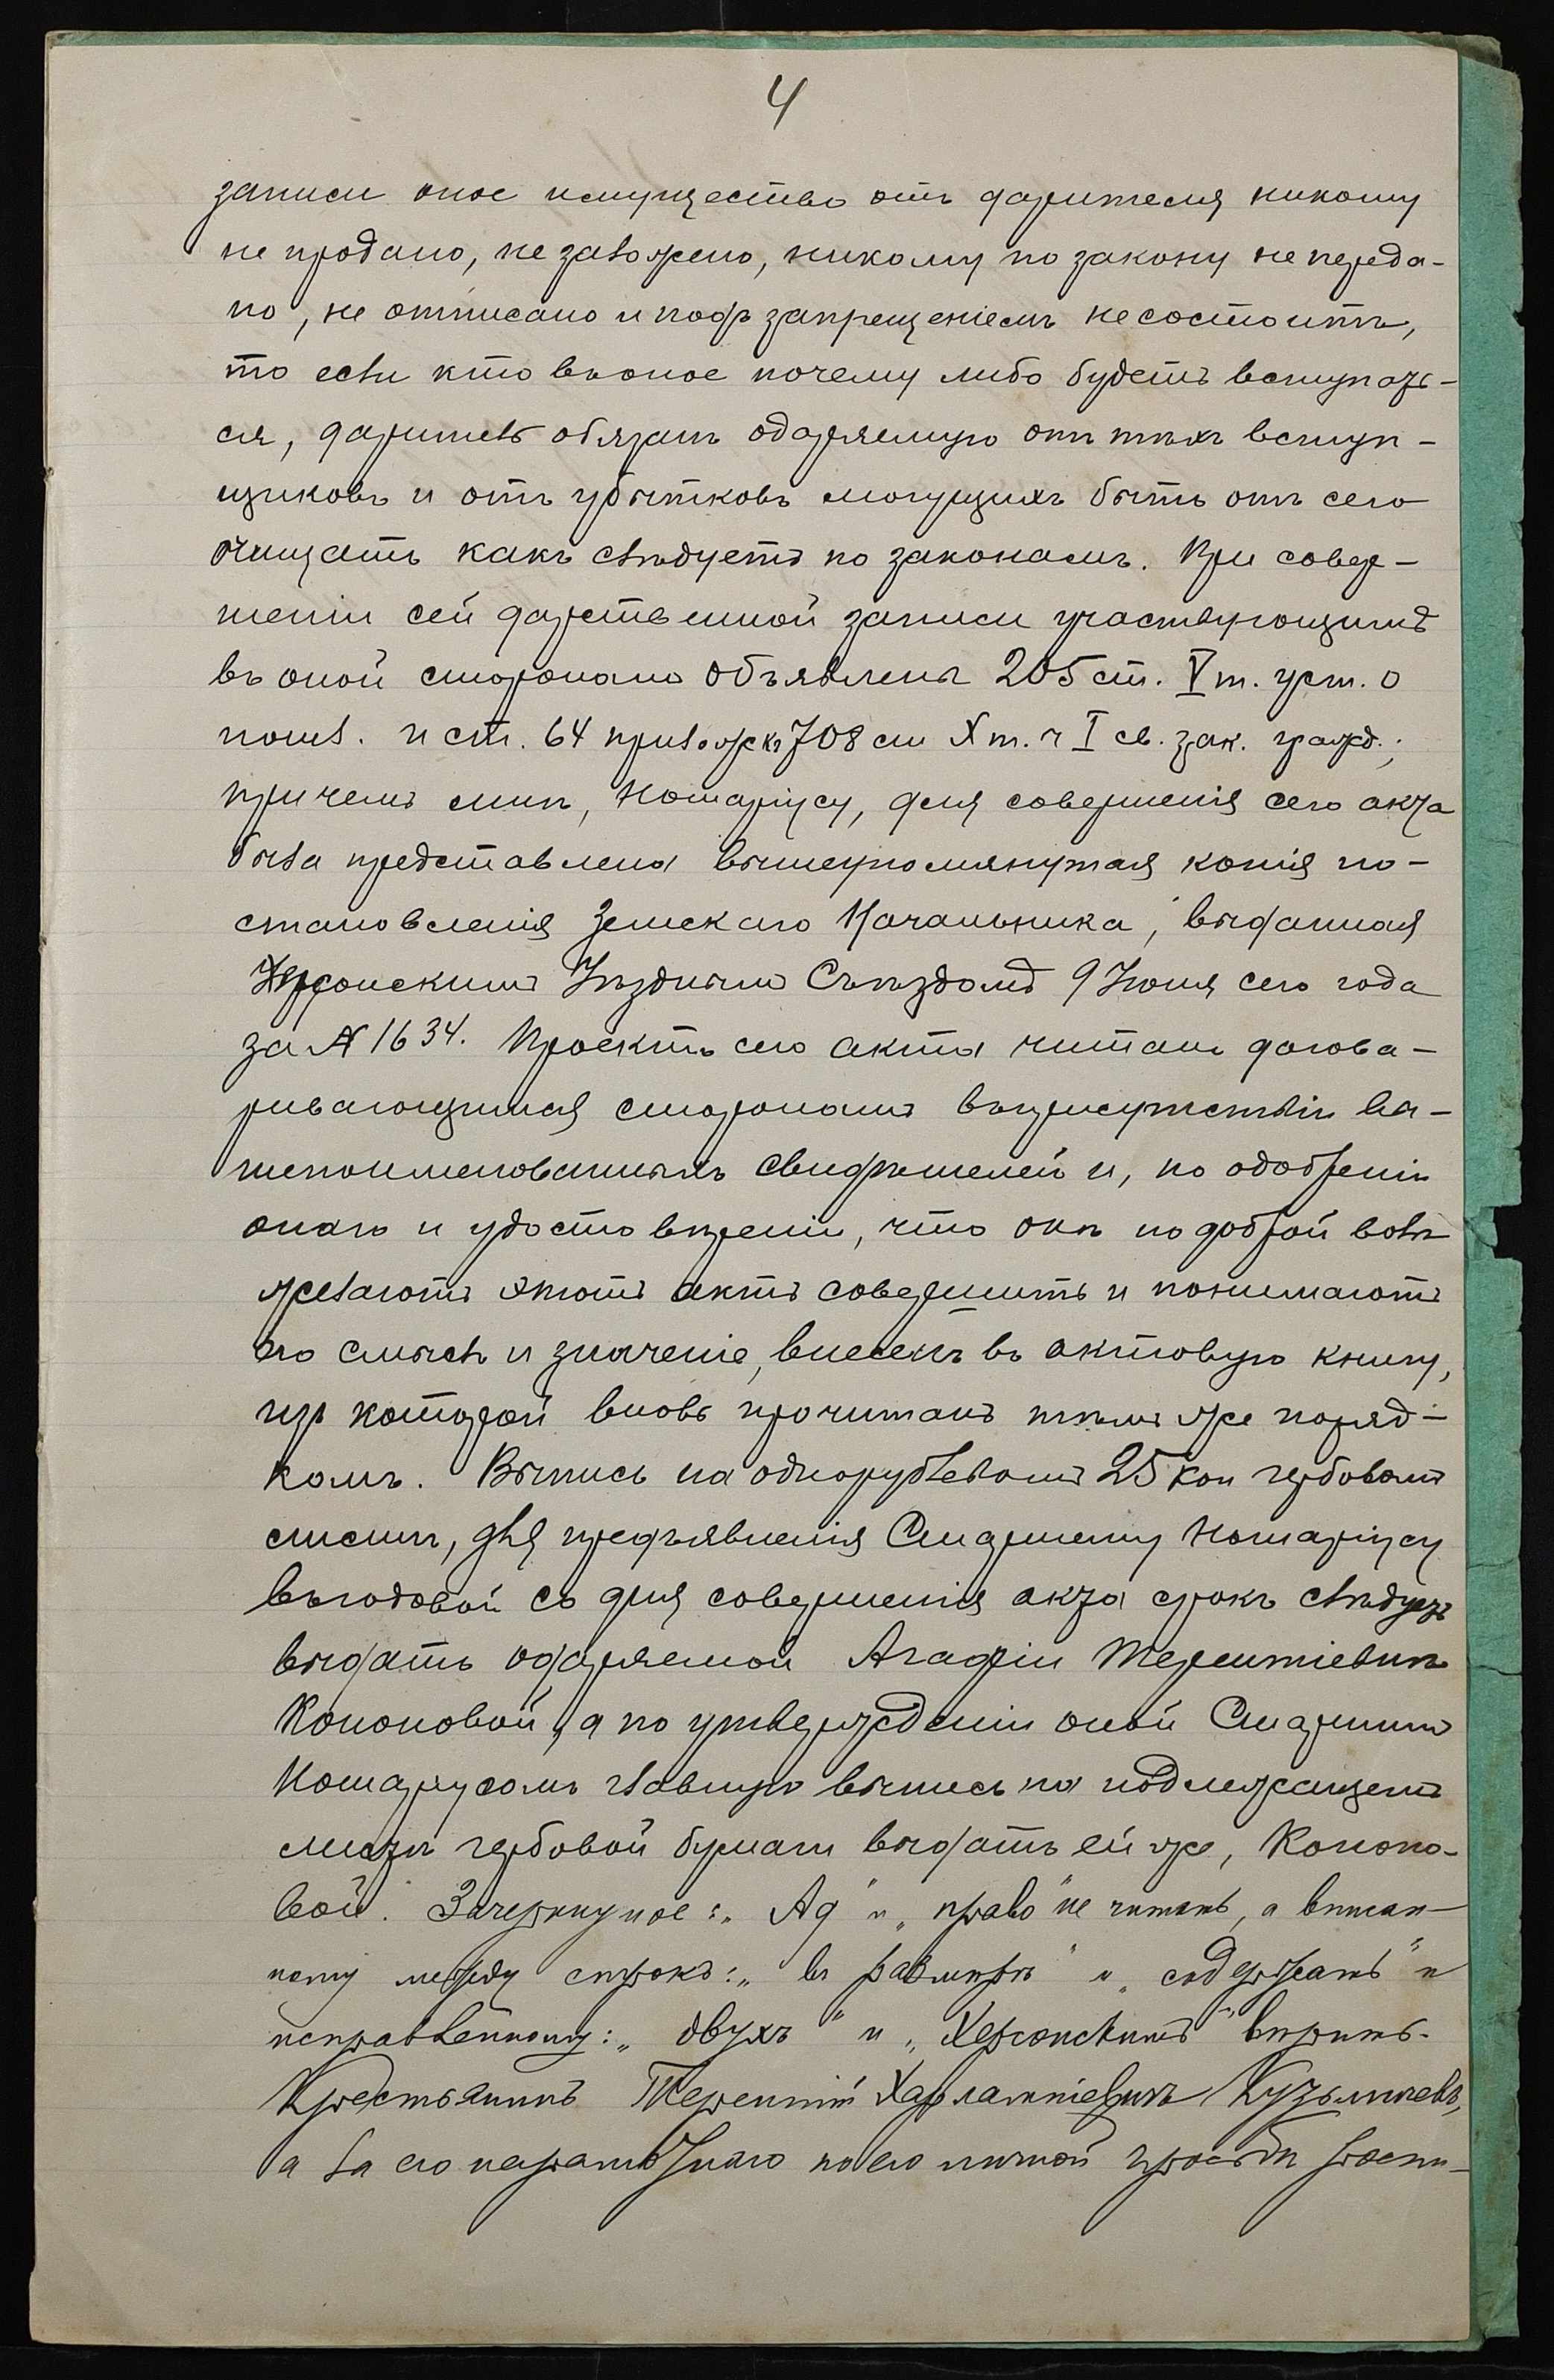 4
записи оное имущество отъ дарителя никому
не продано, не заложено, никому по закону не переда-
но, не отписано и подъ запрещеніемъ не состоитъ,
то если кто въ оное почему либо будетъ вступать-
ся, даритель обязанъ одаряемую отъ тѣхъ вступ-
щиковъ и отъ убытковъ могущихъ быть отъ сего
очищать какъ слѣдуетъ по законамъ. При совер-
шеніи сей дарственной записи участвующимъ
въ оной сторонамъ объявлены 205 ст. V т. уст. о
пошл. и ст. 64 прилож къ 708 ст X т. ч I св. зак. гражд.;
причемъ мнѣ, Нотаріусу, для совершенія сего акта
была представлена вышеупомянутая копія по-
становленія Земскаго Начальника, выданная
Херсонскимъ Уѣзднымъ Съѣздомъ 9 Іюня сего года
за № 1634. Проектъ сего акта читанъ догова-
ривающимся сторонамъ въ присутствіи вы-
шепоименованныхъ свидѣтелей и, по одобреніи
онаго и удостовѣреніи, что онѣ по доброй волѣ
желаютъ этотъ актъ совершить и понимаютъ
его смыслъ и значеніе, внесенъ въ актовую книгу,
изъ которой вновь прочитанъ тѣмъ же поряд-
комъ. Выпись на однорублевомъ 25 коп гербовомъ
листѣ, для предъявленія Старшему Нотаріусу
въ годовой со дня совершенія акта срокъ слѣдуетъ
выдать одаряемой Агафіи Терентіевнѣ
Кононовой, а по утвержденіи оной Старшимъ
Нотаріусомъ главную выпись на подлежащемъ
листѣ гербовой бумаги выдать ей же, Кононо-
вой. Зачеркнутое: „Ад“ и „право“ не читать, а вписан-
ному между строкъ: „въ размѣрѣ“ и „содержать“ и
исправленному: „двухъ“ и „Херсонскимъ“ вѣрить.
Крестьянинъ Терентій Харлампіевичъ Кузьмичевъ,
а за его неграмотнаго по его личной просьбѣ роспи-